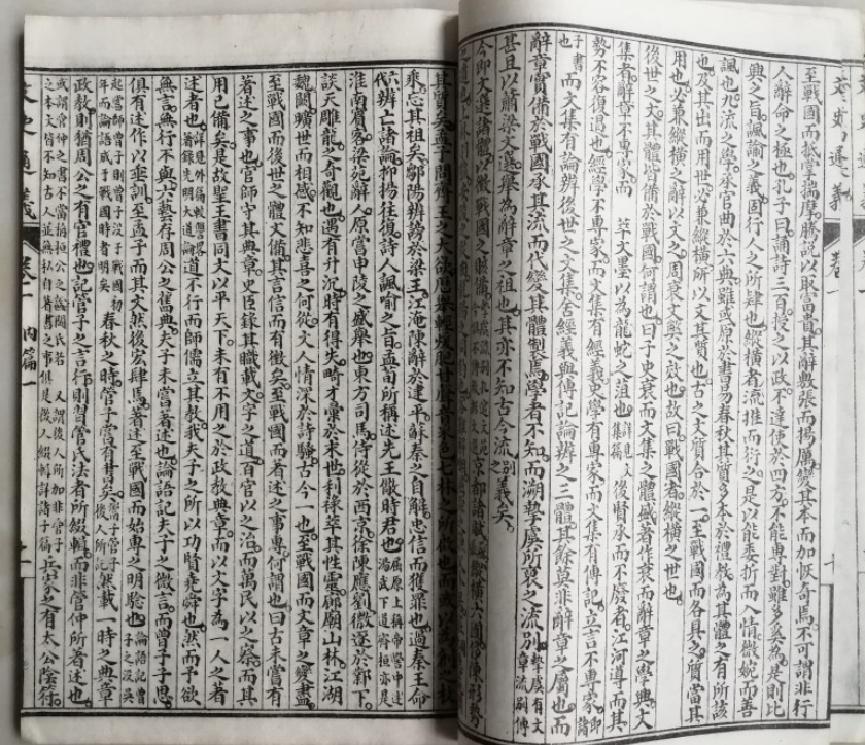 文史通義 卷一
至戰國而抵掌揣摩騰說以取富貴其辭敷張而揚厲變其本而加恢奇焉不可謂非行
人辭命之極也孔子曰誦詩三百授之以政不達使於四方不能專對雖多奚為是則比
興之旨諷諭之義固行人之所肄也縱橫者流推而衍之是以能委折而入情微婉而善
諷也九流之學承官曲於六典雖或原於書易春秋其質多本於禮教為其體之有所該
也及其出而用世必兼縱橫所以文其質也古之文質合於一至戰國而各具之質當其
用也必兼縱橫之辭以文之周衰文弊之效也故曰戰國者縱橫之世也
後世之文其體皆備於戰國何謂也曰子史衰而文集之體盛著作衰而辭章之學興文
集者辭章不專家而 萃文墨以為龍蛇之菹也詳見文集篇後賢承而不廢者江河導而其
勢不容復遏也經學不專家而文集有經義史學有專家而文集有傳記立言不專家即諸
子書也而文集有論辨後世之文集舍經義與傳記論辨之三體其餘莫非辭章之屬也而
辭章實備於戰國承其流而代變其體製焉學者不知而溯摯虞所裒之流別摯虞有文章流別傳
甚且以蕭梁文選舉為辭章之祖也其亦不知古今流別之義矣
今即文選諸體以徵戰國之賅備京都諸賦蘇張縱橫六國侈陳形勢
其質矣孟子問齊王之大欲歷舉輕煖肥甘聲音采色七林之所啟也而或以為創之枚
乘忘其祖矣鄒陽辨謗於梁王江淹陳辭於建平蘇秦之自解忠信而獲罪也過秦王命
六代辨亡諸論抑揚往復詩人諷喻之旨孟荀所稱述先王儆時君也屈原上稱帝嚳中述湯武下道齊桓亦是
淮南賓客梁苑辭人原嘗申陵之盛舉也東方司馬侍從於西京徐陳應劉徵逐於鄴下
談天雕龍之奇觀也遇有升沉時有得失畸才彙於末世利祿萃其性靈廊廟山林江湖
魏闕曠世而相感不知悲喜之何從文人情深於詩騷古今一也至戰國而文章之變盡
至戰國而後世之文體備其言信而有徵矣至戰國而著述之事專何謂也曰古未嘗有
著述之事也官師守其典章史臣錄其職載文字之道百官以之治而萬民以之察而其
用已備矣是故聖王書同文以平天下未有不用之於政教典章而以文字為一人之著
述者也詳見外篇較讐畧著錄先明大道論道不行而師儒立其教我夫子之所以功賢堯舜也然而予欲
無言無行不與六藝存周公之舊典夫子未嘗著述也論語記夫子之微言而曾子子思
俱有述作以垂訓至孟子而其文然後宏肆焉著述至戰國而始專之明驗也論語記曾子之沒吳
起嘗師曾子則曾子沒于戰國初年而論語成于戰國時者明矣春秋之時管子嘗有書矣鬻子晏子後人所託然載一時之典章
政教則猶周公之有官禮也記管子之言行則習管氏法者所綴輯而非管仲所著述也
或謂管仲之書不當稱桓公之諡閻氏若璩又謂後人所加非管子之本文皆不知古人並無私自著書之事俱是後人綴輯詳諸子篇兵家之有太公陰符
文史通義 卷一 內篇一